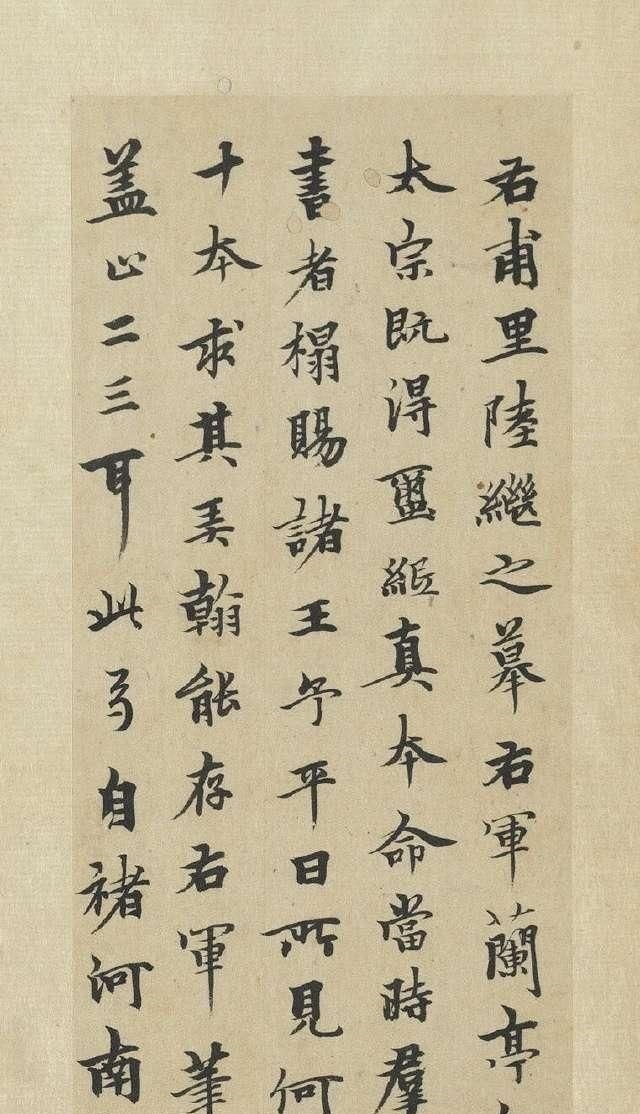 右甫里陸繼之摹右軍蘭亭
太宗既得蠒紙真本命當時羣
書者榻賜諸王予平日所見何
十本求其美翰能存右軍筆
盖止二三耳此卷自褚河南